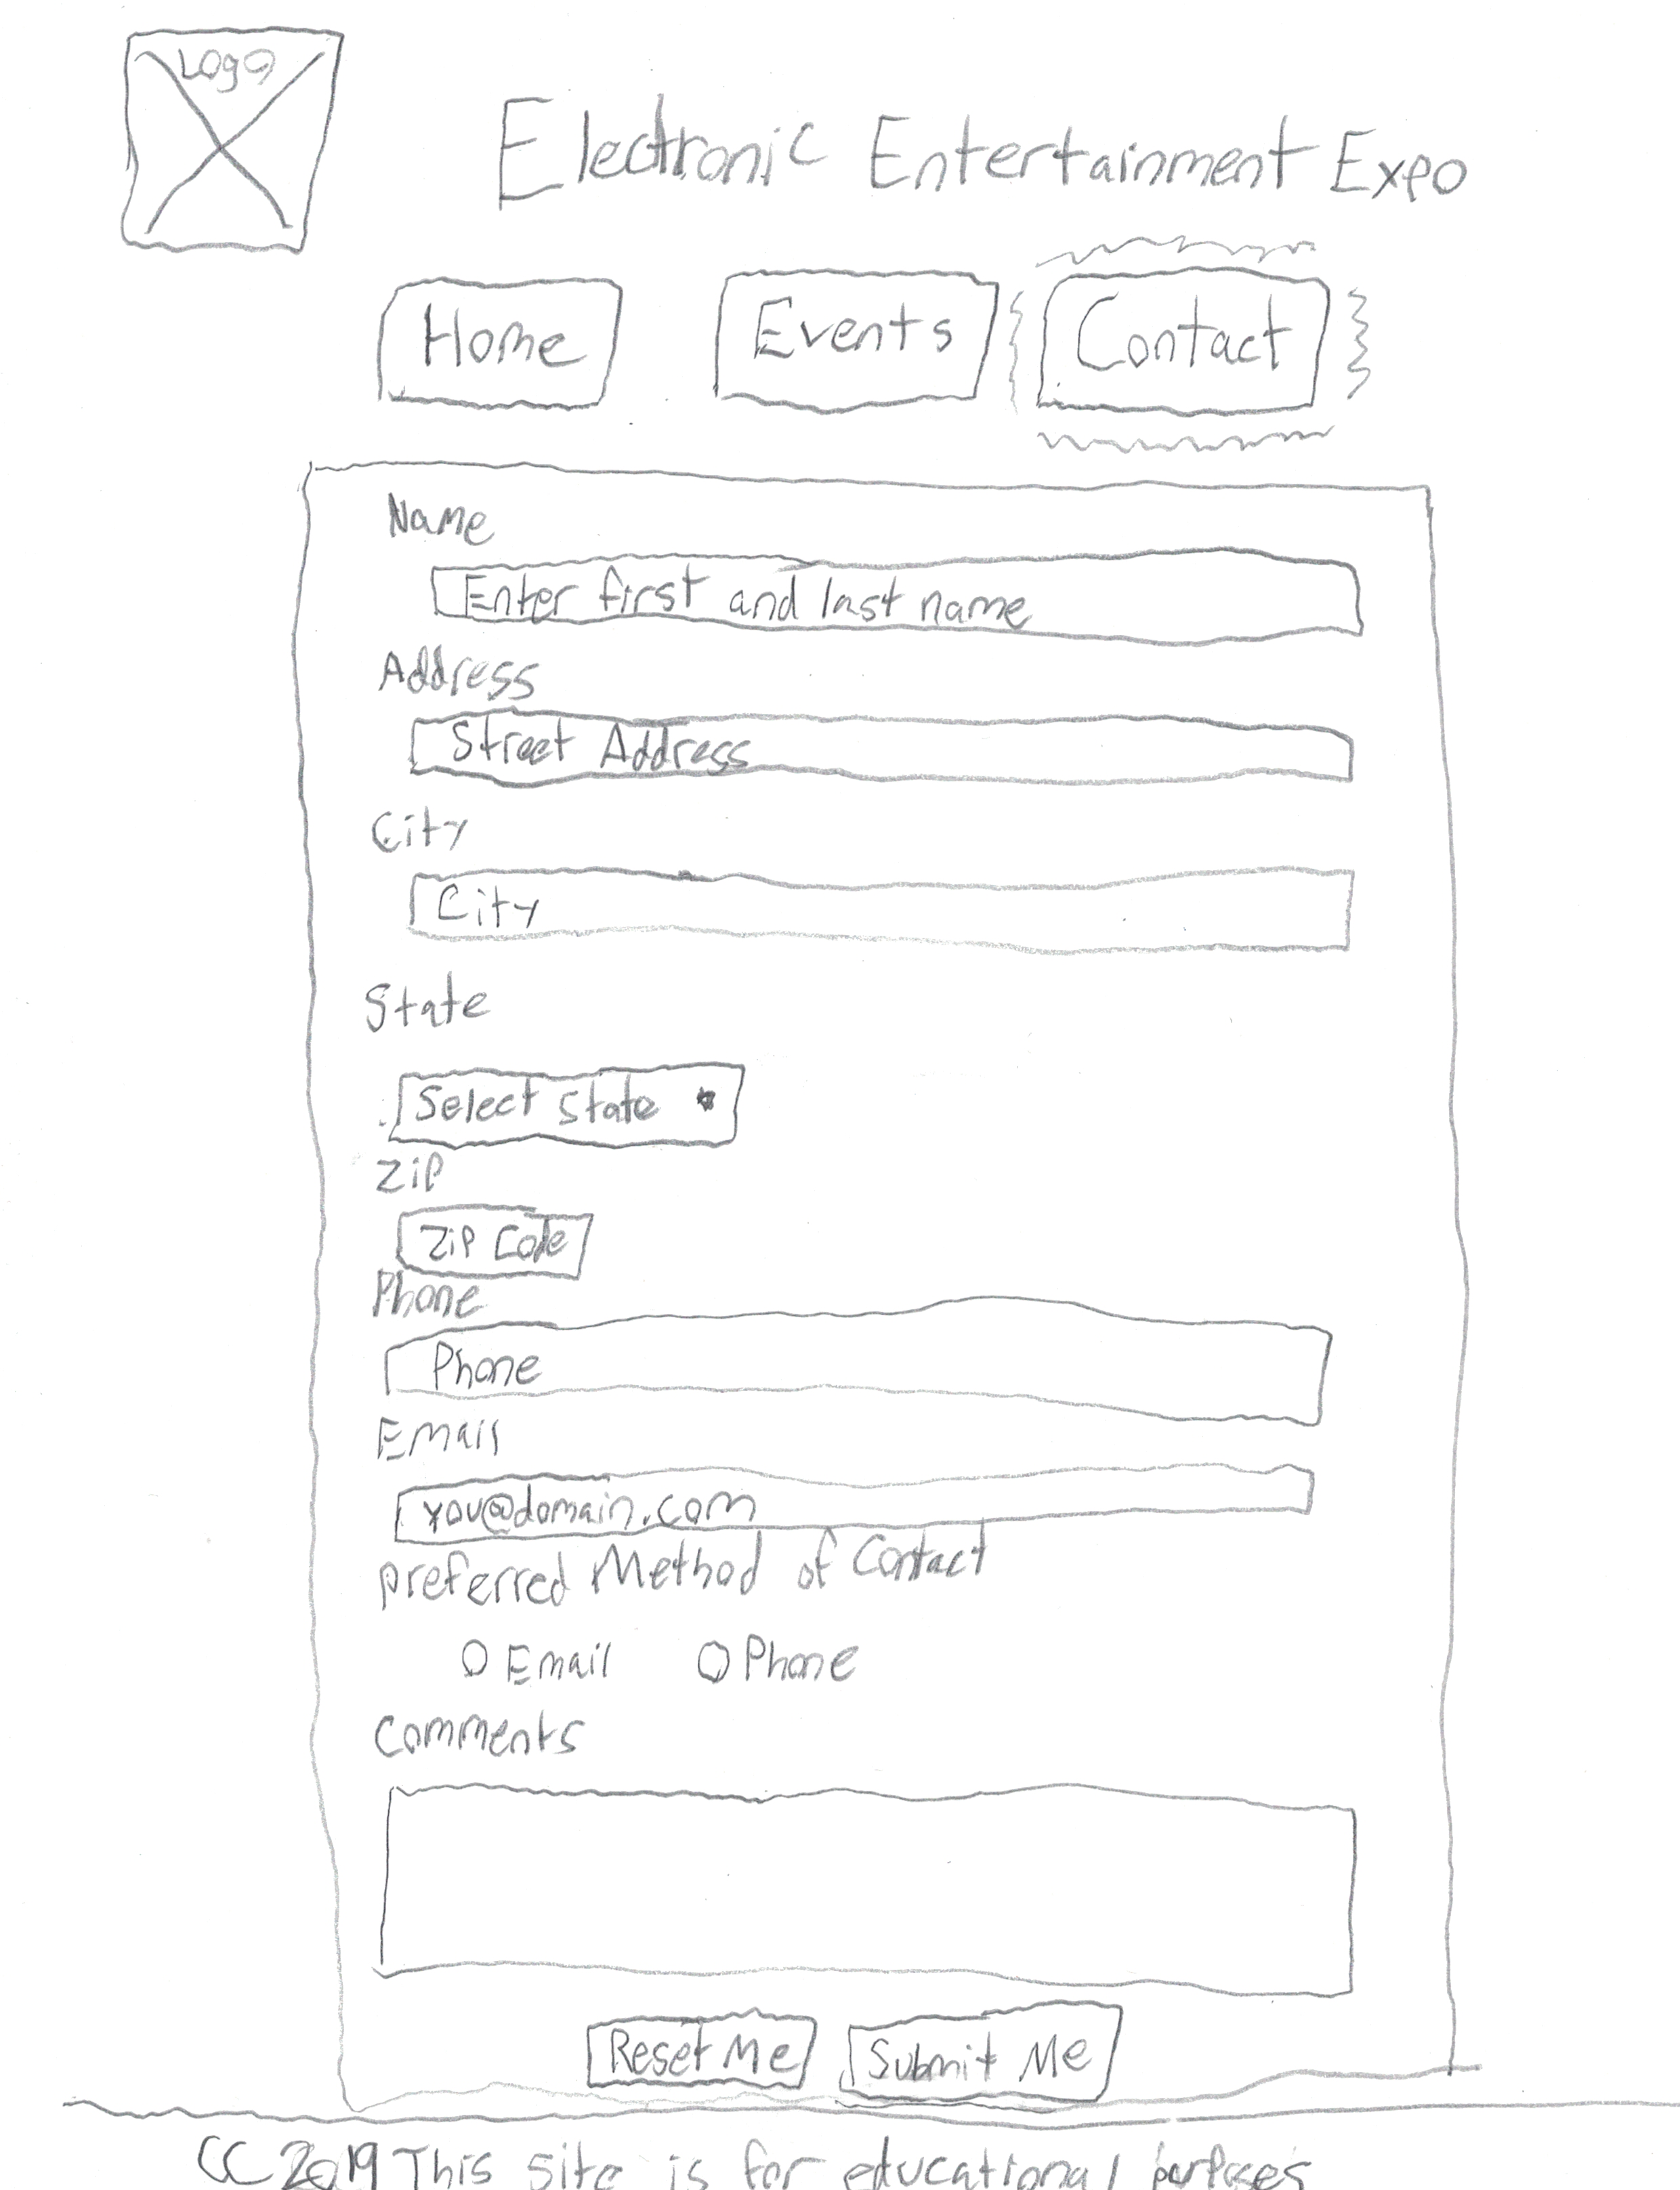 Logo
Electronic Entertainment Expo
Home Events Contact
Name
Enter first and last name
Address
Street Address
City
City
State
Select State
Zip
Zip Code
Phone
Phone
Email
you@domain.com
preferred Method of Contact
Email Phone
Comments
Reset Me Submit Me
CC 2019 This site is for educational purposes